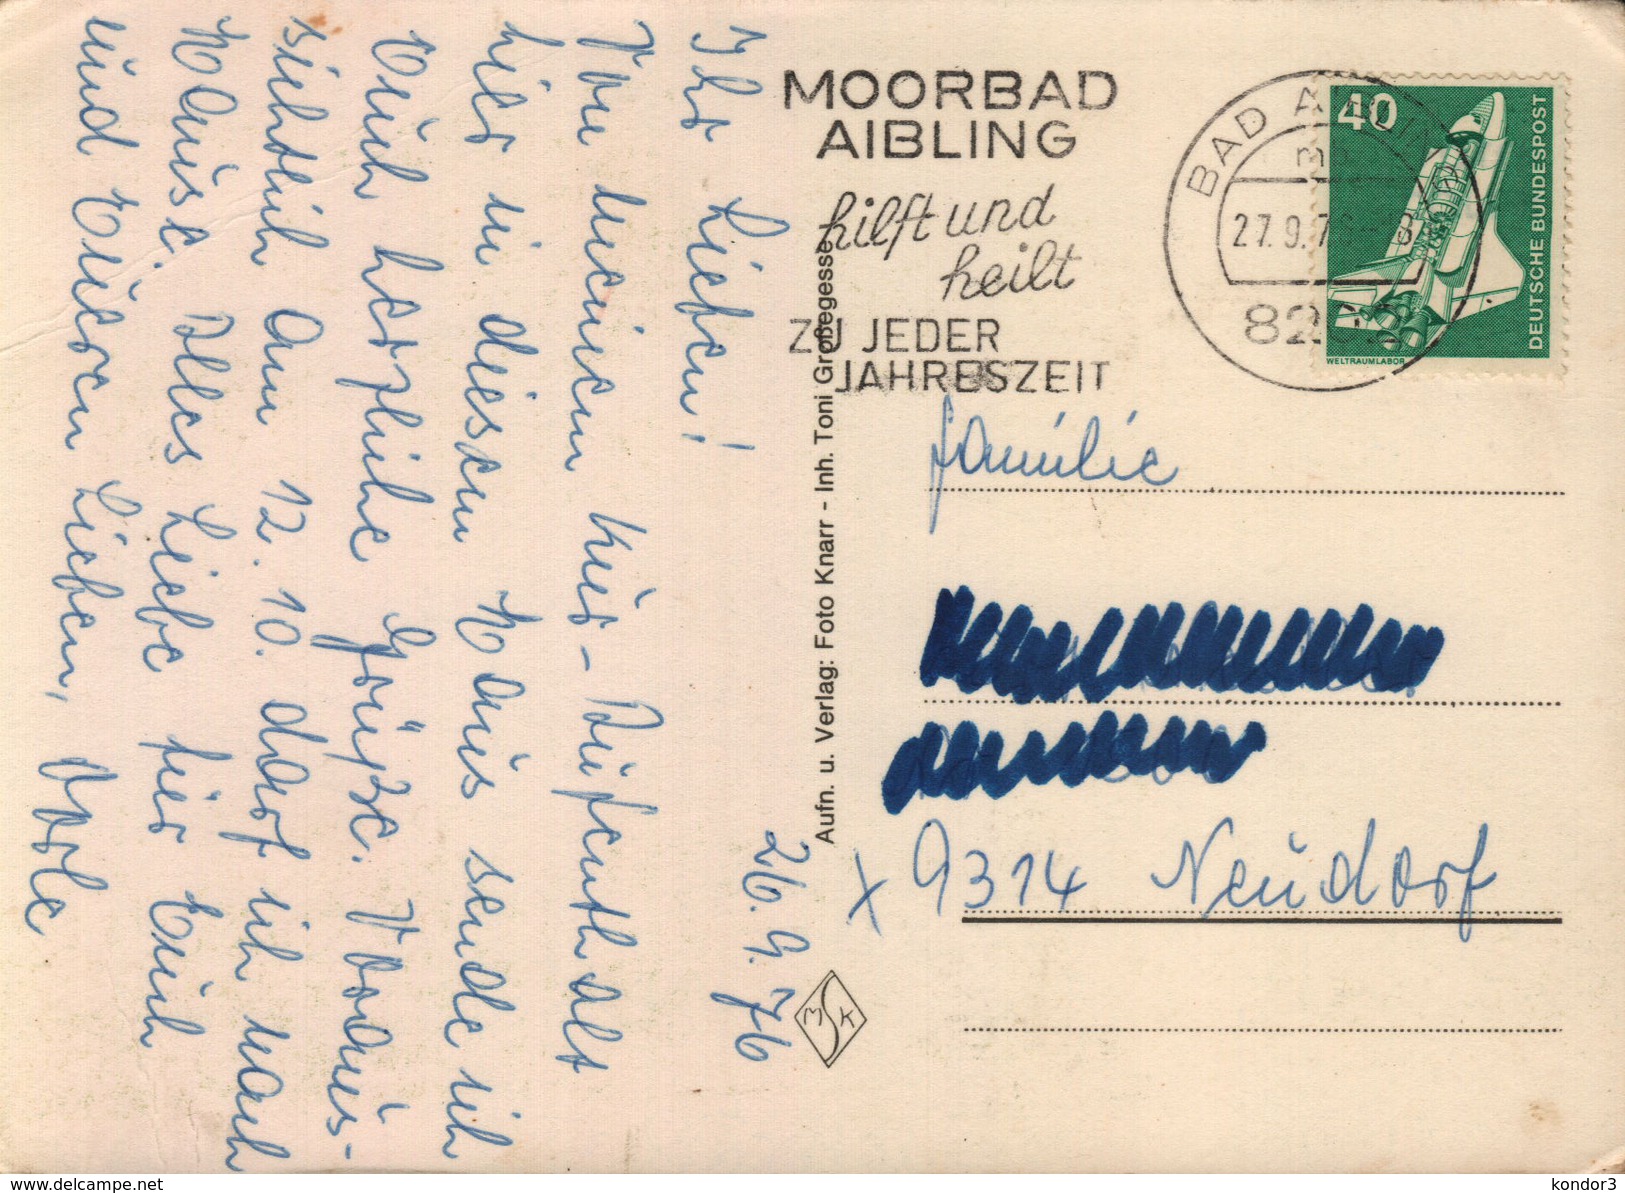 26. 9. 76
Ihr Lieben!
Von meinem Kur-Aufenthalt
hier in diesem Haus sende ich
Euch herzliche Grüße. Voraus-
sichtlich am 12. 10. darf ich nach
Hause. Alles Liebe für Euch
und Eueren Lieben,
MOORBAD
AIBLING
hilft und
heilt
ZU JEDER
JAHRESZEIT
BAD AIBLING
27.9.76-18
40
DEUTSCHE BUNDESPOST
WELTRAUMLABOR
Aufn. u. Verlag: Foto Knarr - Inh. Toni Großegesse
Familie
x 9314 Neudorf
www.delcampe.net
kondor3